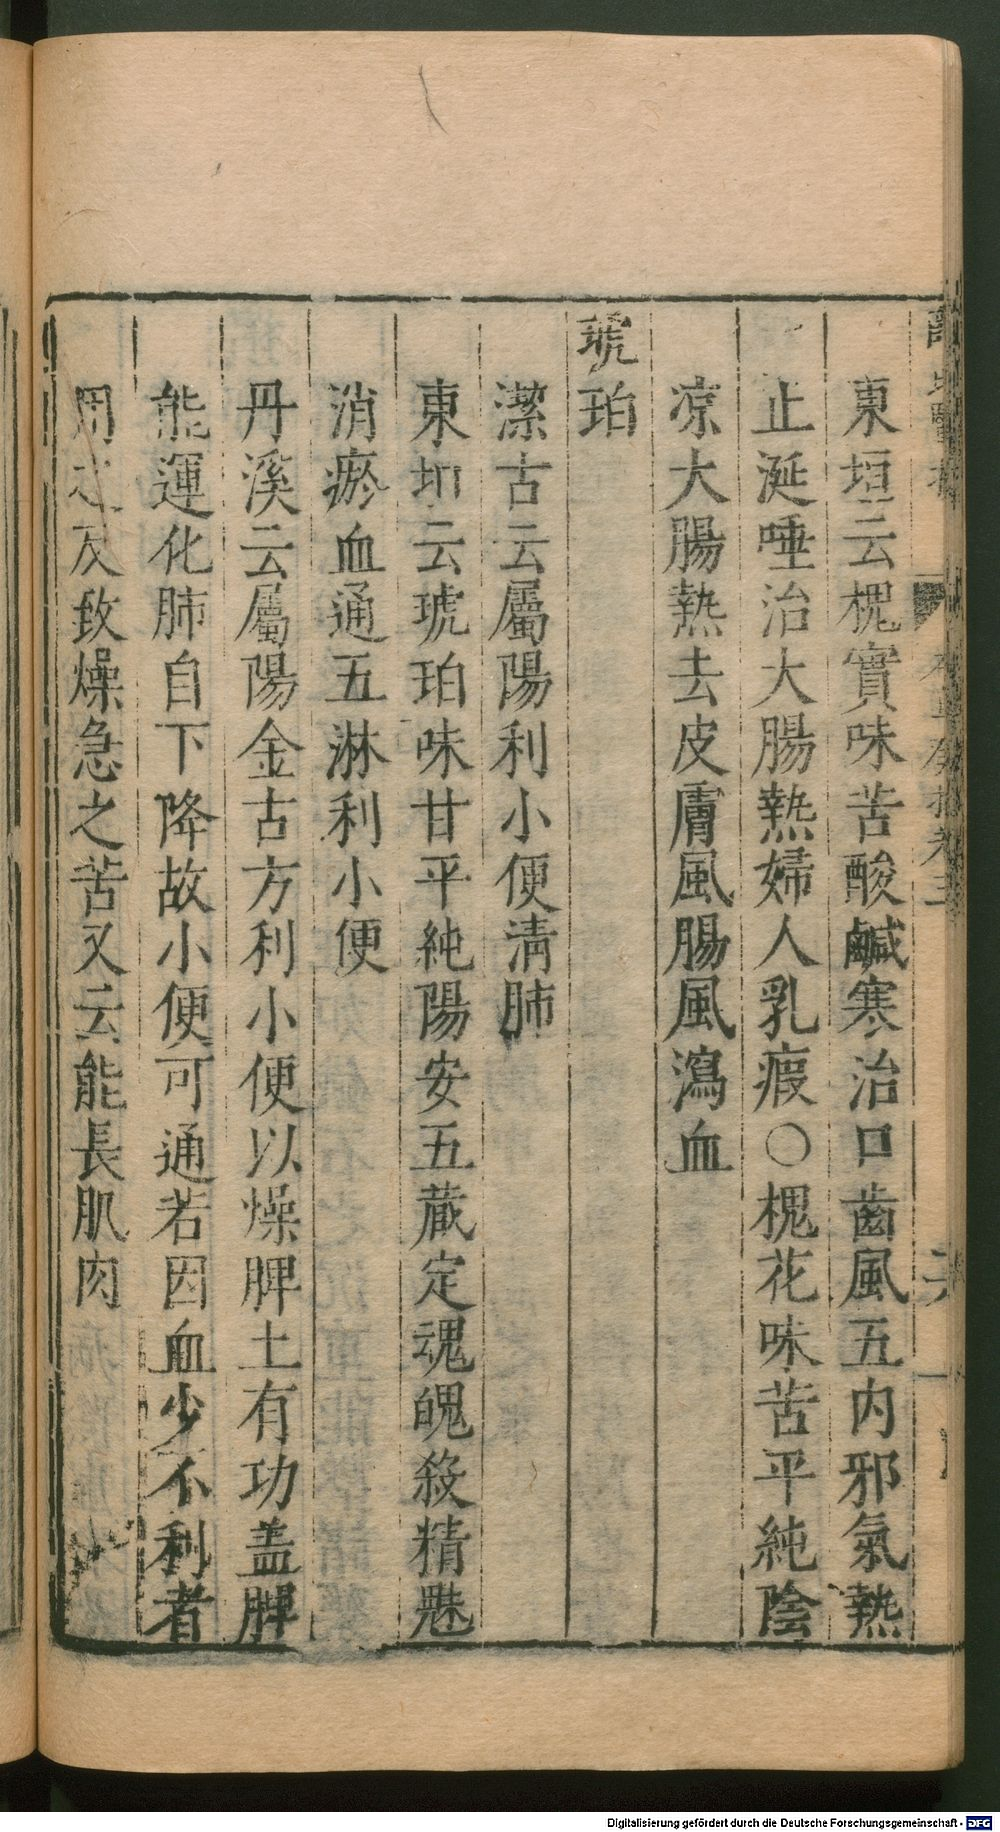 東垣云槐實味苦酸鹹寒治口齒風五内邪氣熱
止涎唾治大腸熱婦人乳瘕〇槐花味苦平純陰
凉大腸熱去皮膚風腸風瀉血
琥珀
潔古云屬陽利小便清肺
東垣云琥珀味甘平純陽安五蔵定魂魄殺精魅
消瘀血通五淋利小便
丹溪云屬陽金古方利小便以燥脾土有功盖脾
能運化肺自下降故小便可通若因血少不利者
用之反致燥急之苦又云能長肌肉
Digitalisierung gefördert durch die Deutsche Forschungsgemeinschaft - DFG